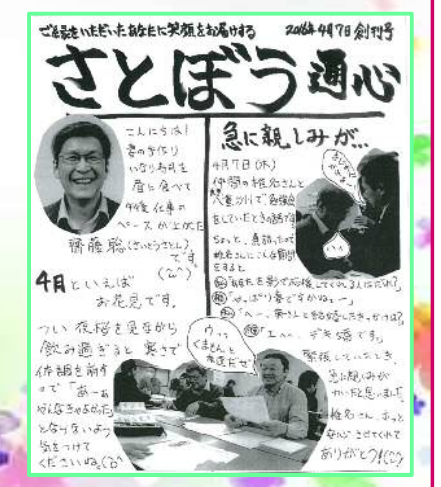 ご縁をいただいたあなたに笑顔をお届けする
2016年4月7日 創刊号
さとぼう通心
こんにちは!
妻の手作り
いなりお寿司を
昼に食べて
午後、仕事の
ペースが上がった
齊藤聡(さいとうさとし)
です。
4月といえば
お花見です。
つい夜桜を見ながら
飲み過ぎると寒さで
体調を崩す
ので「あーぁ
やんなきゃよかった」
とならないよう
気をつけて
くださいね。
急に親しみが…
4月7日(木)
仲間の椎名さんと
八重洲で勉強会
をしていたときの話です。
ちょっと、真顔になって
椎名さんにこんな質問
をすると
「あなたを影で応援してくれる人はだれ?」
「やっぱり妻ですかねぇー」
「へー、奥さんと結婚したきっかけは?」
「エへへ、デキ婚です。」
緊張していたとき、
急に親しみが
わいたと思いました。
椎名さん、ホッと
なごませてくれて
ありがとう!
ハイ
ウッ
くまもんと
友達だぜ